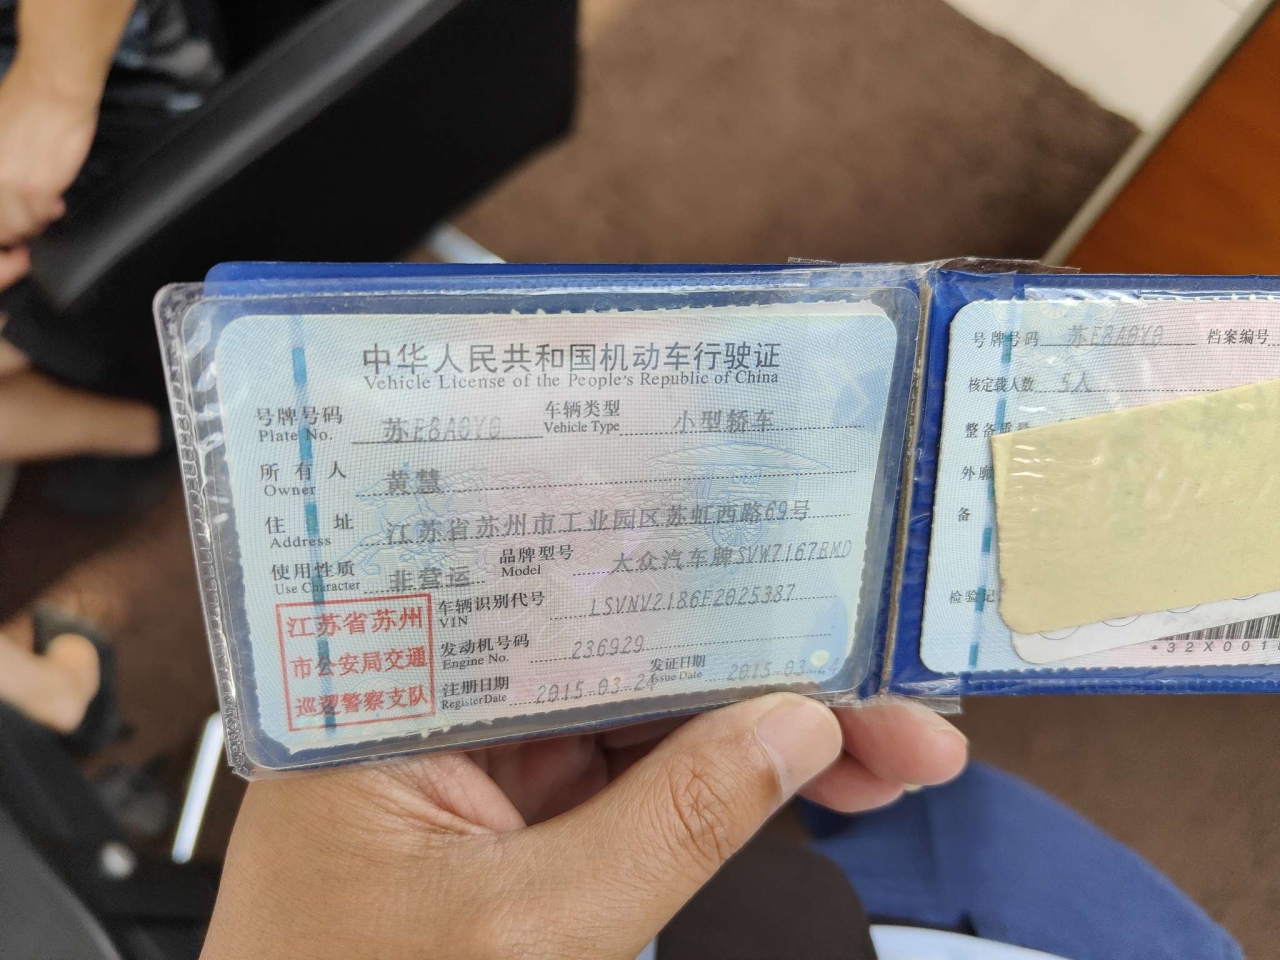 中华人民共和国机动车行驶证
Vehicle License of the People's Republic of China
号牌号码 苏E8A0Y0 车辆类型 小型轿车
Plate No. Vehicle Type
所有人 黄慧
Owner
住址 江苏省苏州市工业园区苏虹西路69号
Address
使用性质 非营运 品牌型号 大众汽车牌SVW7167BMD
Use Character Model
江苏省苏州
市公安局交通
巡逻警察支队
车辆识别代号 LSVNV2186F2025387
VIN
发动机号码 236929
Engine No.
注册日期 2015-03-24 发证日期 2015-03-24
Register Date Issue Date
号牌号码 苏E8A0Y0 档案编号
核定载人数 5人
整备质量
外廓
备
检验记
*32X001